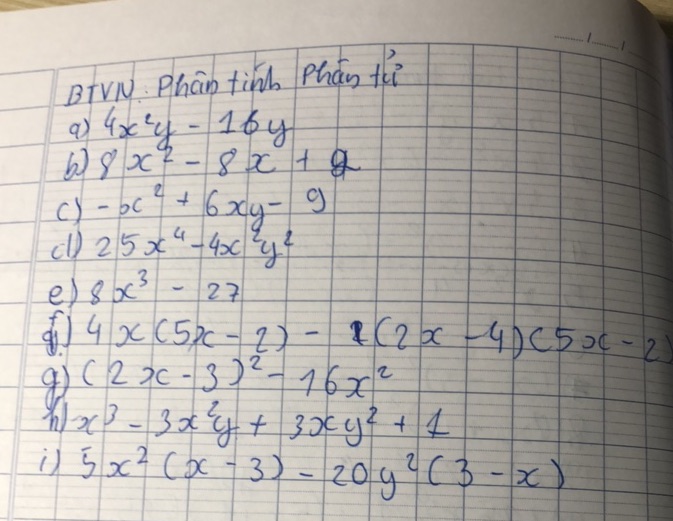 BTVN: Phân tính Phân tử
a) 4x²y - 16y
b) 8x² - 8x + 2
c) -x² + 6xy - 9
d) 25x⁴ - 4x²y²
e) 8x³ - 27
f) 4x(5x - 2) - (2x - 4)(5x - 2)
g) (2x - 3)² - 16x²
h) x³ - 3x²y + 3xy² + 1
i) 5x² (x - 3) - 20y² (3 - x)